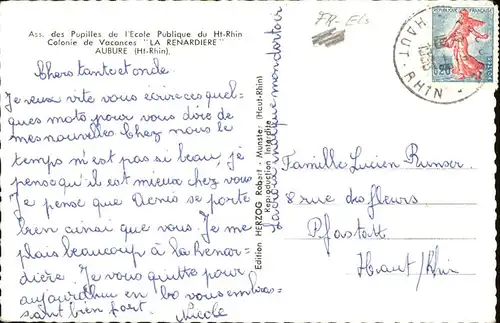 Ass. des Pupilles de l'Ecole Publique du Ht-Rhin
Colonie de Vacances "LA RENARDIERE"
AUBURE (Ht-Rhin).
FR-Els
HAUT-RHIN
0,20
Chers tante et oncle.
Je veux vite vous écrire ces quel-
ques mots pour vous dire de
mes nouvelle Chez nous le
temps n'est pas si beau, je
pense qu'il est mieux chez vous
Je pense que Denis se porte
bien ainsi que vous. Je me
plais beaucoup à la Renar-
dière. Je vous quitte pour
aujourdhui en vous embras-
sant bien fort.
Nicole
Edition HERZOG Robert - Munster (Haut-Rhin)
Reproduction Interdite
Famille Lucien Runser
8 rue des fleurs
Pfastatt
Haut/Rhin